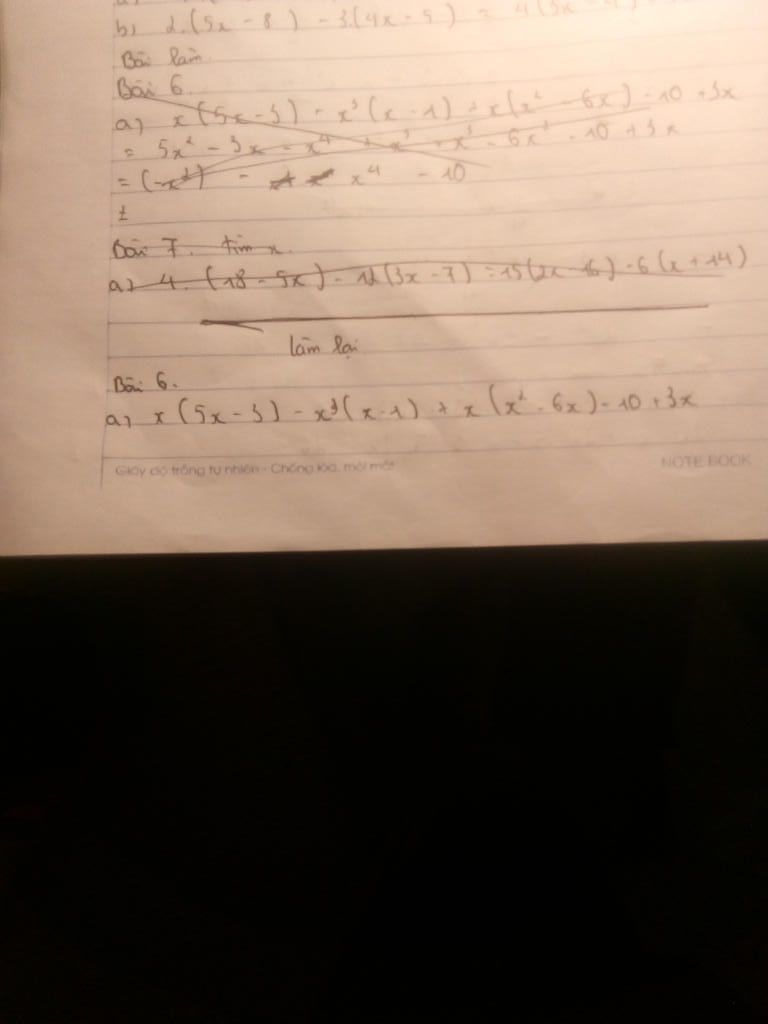 b) 2.(5x - 8) - 3.(4x - 5) = 4(3x - 4)
Bài làm
Bài 6
a) x(5x - 3) - x³(x - 1) + x(x² - 6x) - 10 + 3x
= 5x² - 3x - x⁴ + x³ + x³ - 6x² - 10 + 3x
= (-x²) - x⁴ - 10
Bài 7. tìm x.
a) 4.(18 - 5x) - 12(3x - 7) = 15(2x - 16) - 6(x + 14)
làm lại
Bài 6.
a) x(5x - 3) - x³(x - 1) + x(x² - 6x) - 10 + 3x
Giấy độ trắng tự nhiên - Chống lóa, mỏi mắt
NOTE BOOK